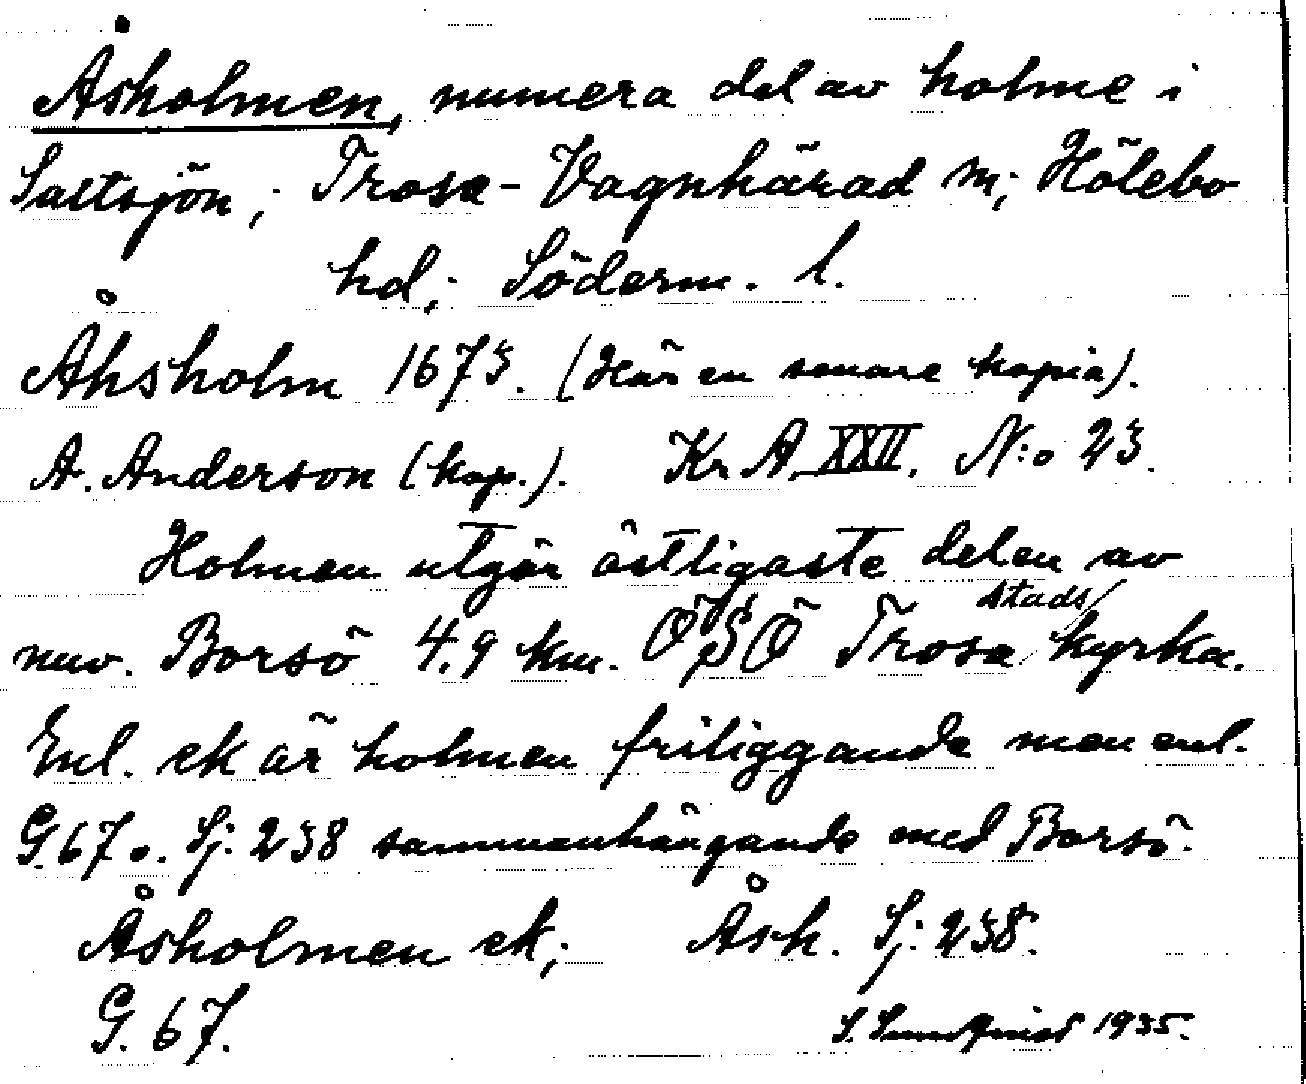 Åsholmen, numera del av holme i
Saltsjön; Trosa-Vagnhärad sn; Hölebo
hd; Söderm. l.
Åhsholm 1673. (Här en senare kopia).
A. Anderson (kop.). Kr A. XXII. N:o 23.
Holmen utgör östligaste delen av
nuv. Borsö 4,9 km. OSO Trosa stads kyrka.
Enl. ek är holmen friliggande men enl.
G. 67 o. Sj. 238 sammanhängande med Borsö.
Åsholmen ek; Åsh. Sj. 238.
G. 67.
S. Sundqvist 1935.